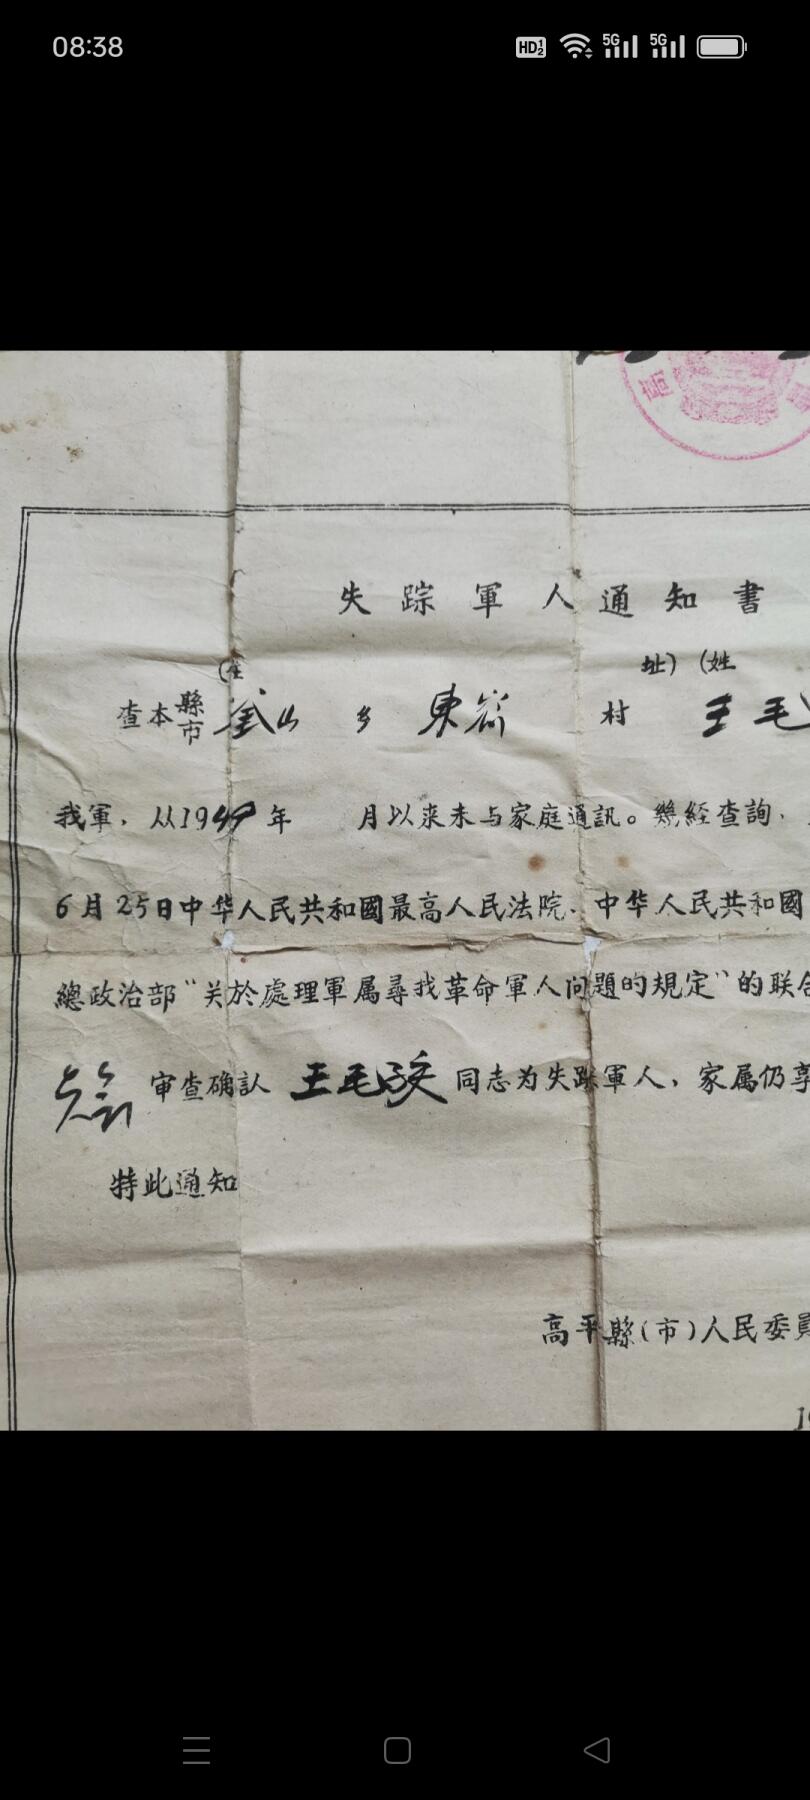 08:38
高
失踪軍人通知書
(住 址) (姓
查本縣市 釜山 乡 東 村 王毛
我軍，从1949年 月以来未与家庭通訊。幾経查詢，
6月25日中华人民共和國最高人民法院、中华人民共和國
總政治部“关於處理軍属尋找革命軍人问題的規定”的联合
审查确認 王毛 同志为失踪軍人，家属仍享
特此通知
高平縣(市)人民委員
19